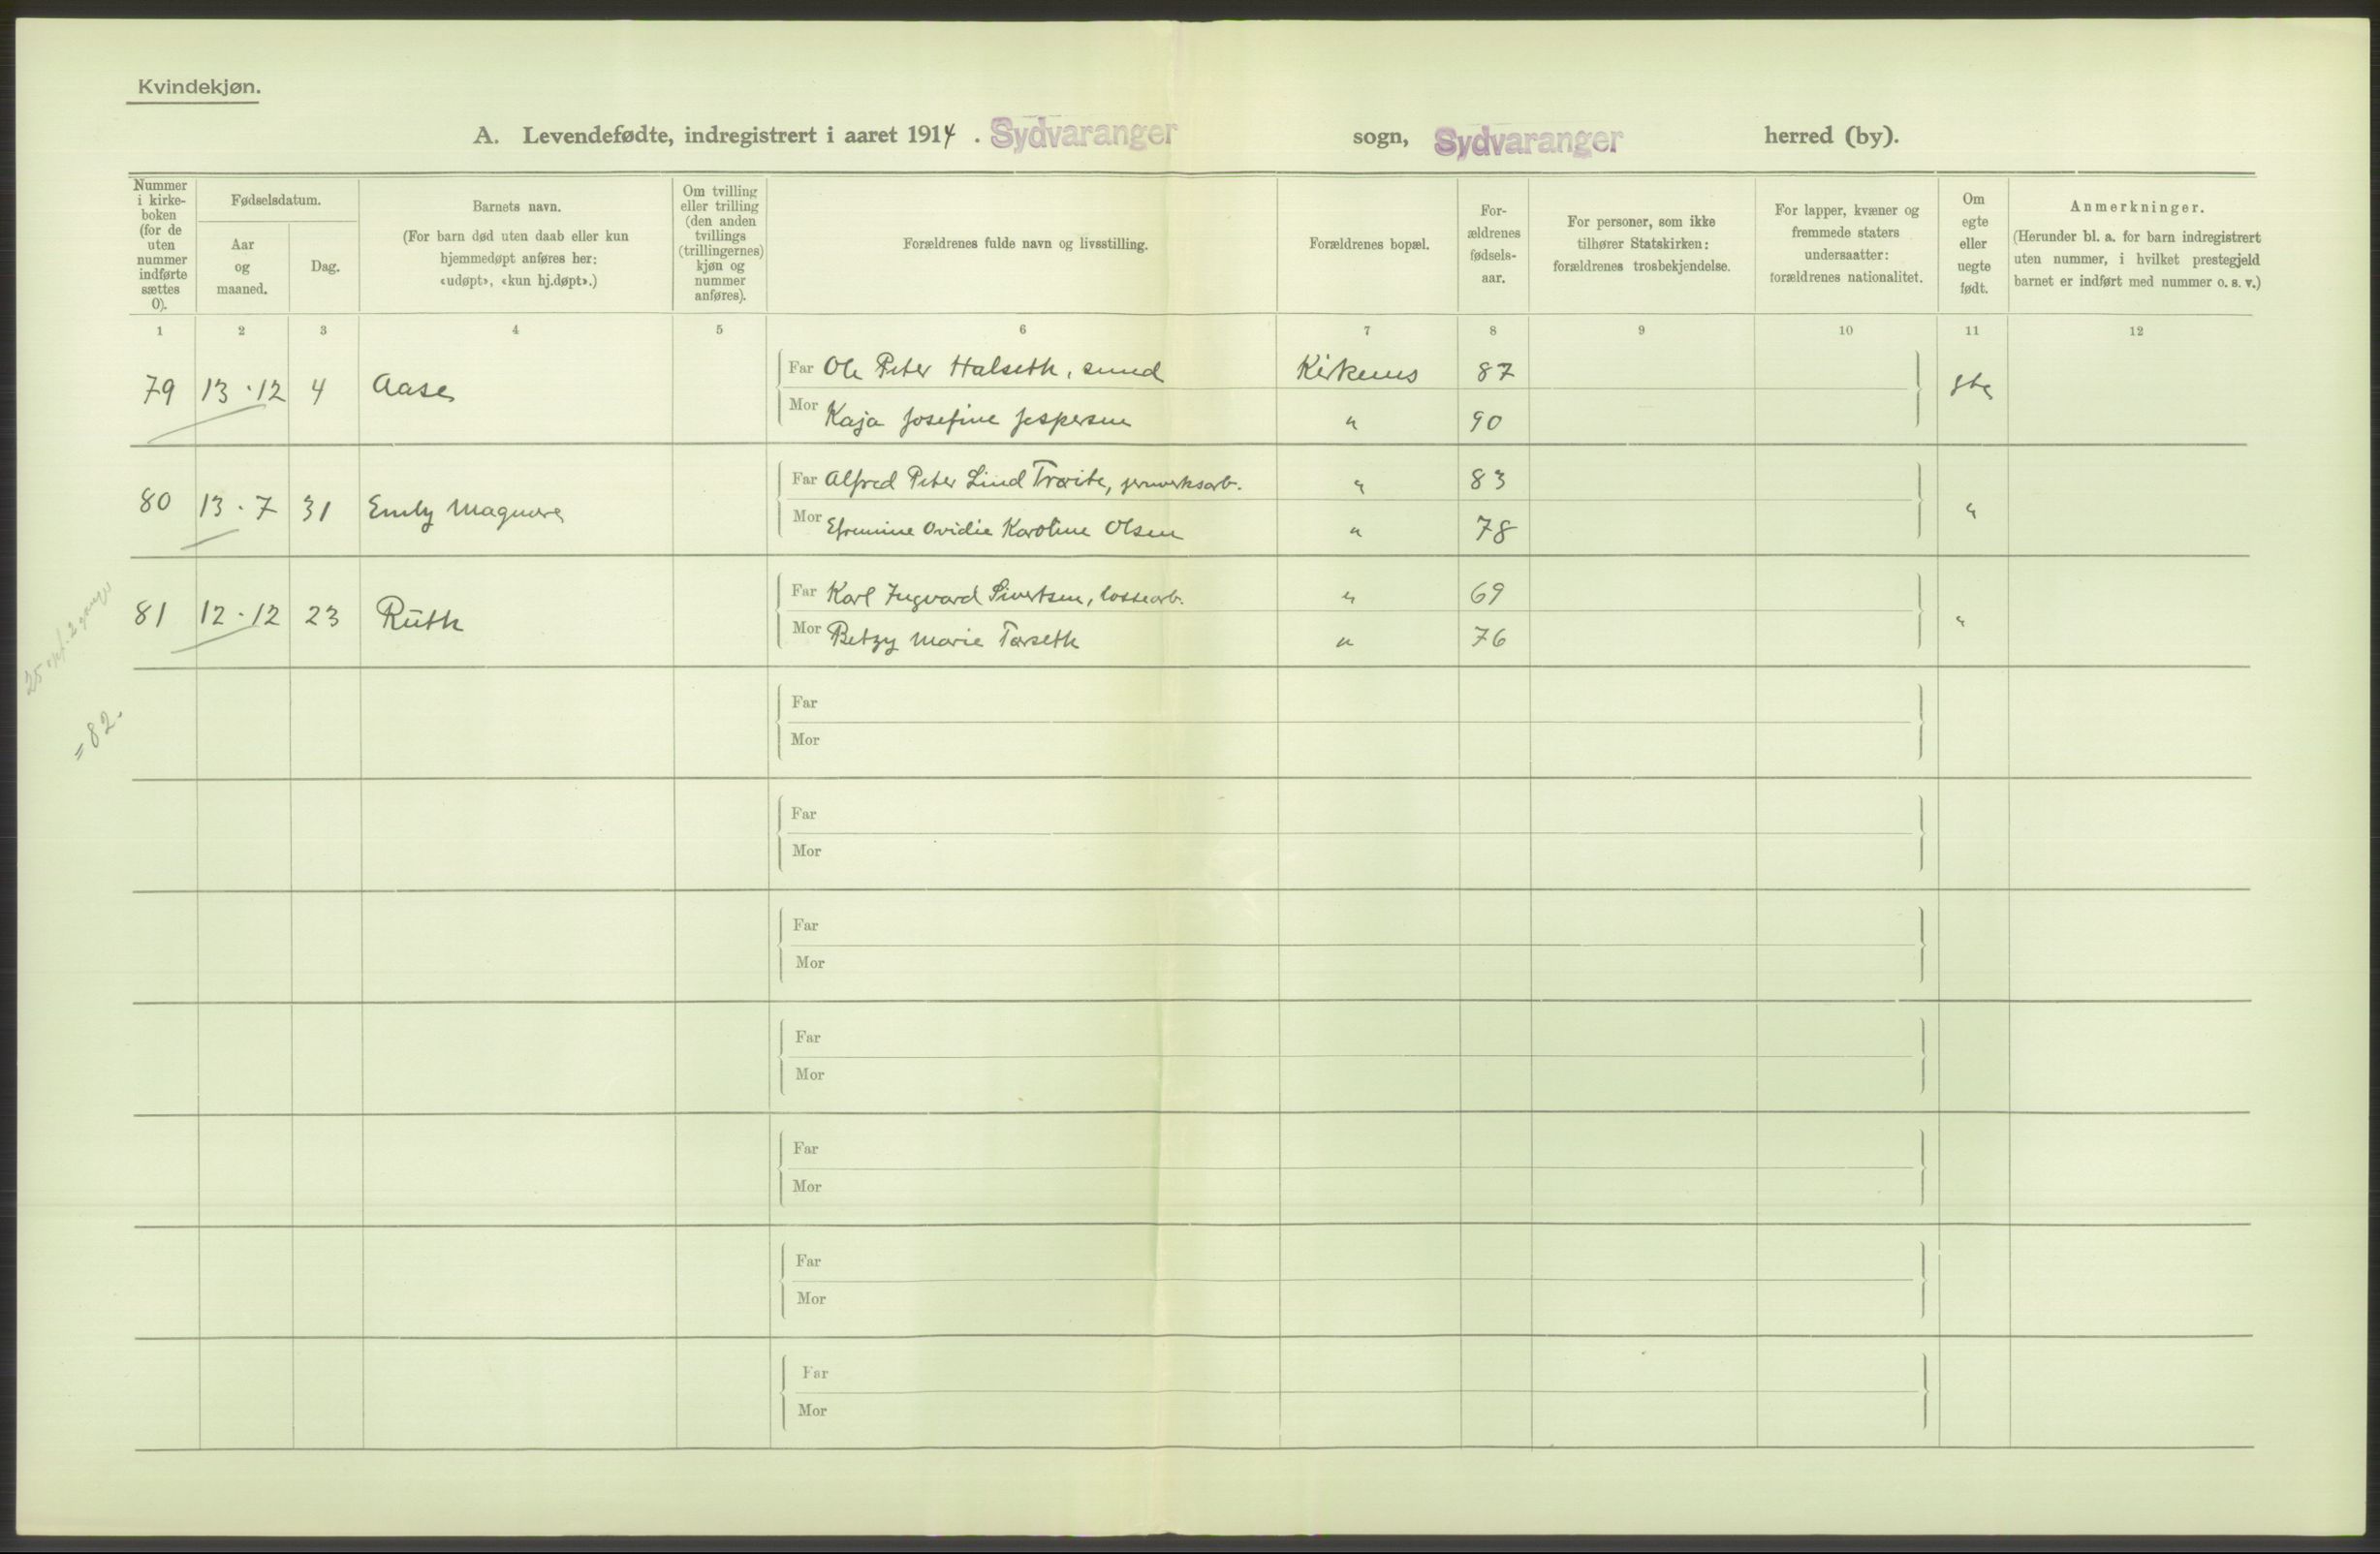 Kvindekjøn.
A. Levendefødte, indregistrert i aaret 1914. Sydvaranger sogn, Sydvaranger herred (by).
Nummer i kirke-boken (for de uten nummer indførte sættes 0).
Fødselsdatum.
Aar og maaned.
Dag.
Barnets navn.
(For barn død uten daab eller kun hjemmedøpt anføres her: «udøpt», «kun hj.døpt».)
Om tvilling eller trilling (den anden tvillings (trillingernes) kjøn og nummer anføres).
Forældrenes fulde navn og livsstilling.
Forældrenes bopæl.
For-ældrenes fødsels-aar.
For personer, som ikke tilhører Statskirken: forældrenes trosbekjendelse.
For lapper, kvæner og fremmede staters undersaatter: forældrenes nationalitet.
Om egte eller uegte født.
Anmerkninger.
(Herunder bl. a. for barn indregistrert uten nummer, i hvilket prestegjeld barnet er indført med nummer o. s. v.)
1 2 3 4 5 6 7 8 9 10 11 12
79 13.12 4 Aase Far Ole Peter Halseth, smed Kirkenes 87 gte
Mor Kaja Josefine Jespersen " 90
80 13.7 31 Emly Magnora Far Alfred Peter Lind , jernverksarb. " 83 "
Mor Efremine Ovidie Karoline Olsen " 78
81 12.12 23 Ruth Far Karl Ingvard Sivertsen, lossearb. " 69 "
Mor Betzy Marie Torseth " 76
25 opf. 2 gange
= 82.
Far
Mor
Far
Mor
Far
Mor
Far
Mor
Far
Mor
Far
Mor
Far
Mor